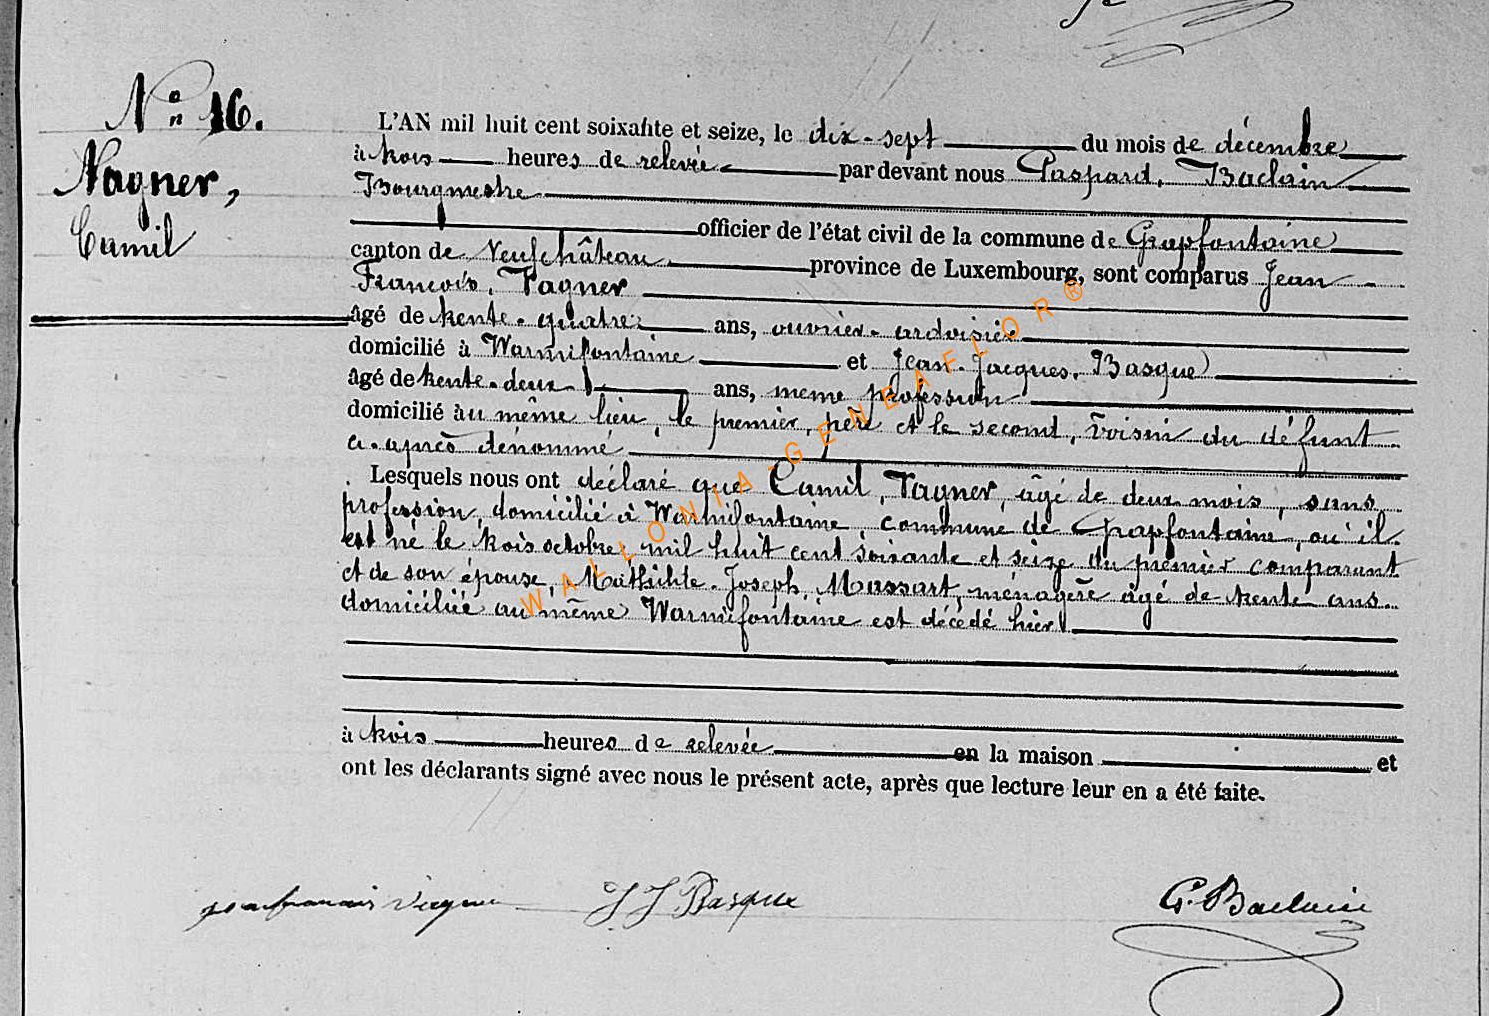 N° 16.
Wagner,
Camil
L'AN mil huit cent soixante et seize, le dix-sept du mois de décembre
à trois heures de relevée par devant nous Gaspard, Baclain
Bourgmestre
officier de l'état civil de la commune de Grapfontaine
canton de Neufchâteau province de Luxembourg, sont comparus Jean
François, Wagner
âgé de trente-quatre ans, ouvrier-ardoisier
domicilié à Warmifontaine et Jean-Jacques, Basque
âgé de trente-deux ans, même profession
domicilié au même lieu, le premier, père et le second, voisin du défunt
ci-après dénommé
Lesquels nous ont déclaré que Camil, Wagner, âgé de deux mois, sans
profession, domicilié à Warmifontaine commune de Grapfontaine, où il
est né le trois octobre mil huit cent soixante et seize du premier comparant
et de son épouse, Mathilde-Joseph, Massart, ménagère âgé de trente ans
domiciliée au même Warmifontaine est décédé hier
à trois heures de relevée en la maison et
ont les déclarants signé avec nous le présent acte, après que lecture leur en a été faite.
J J Basque G. Baclain
WALLONIA-GENEAFLOR®